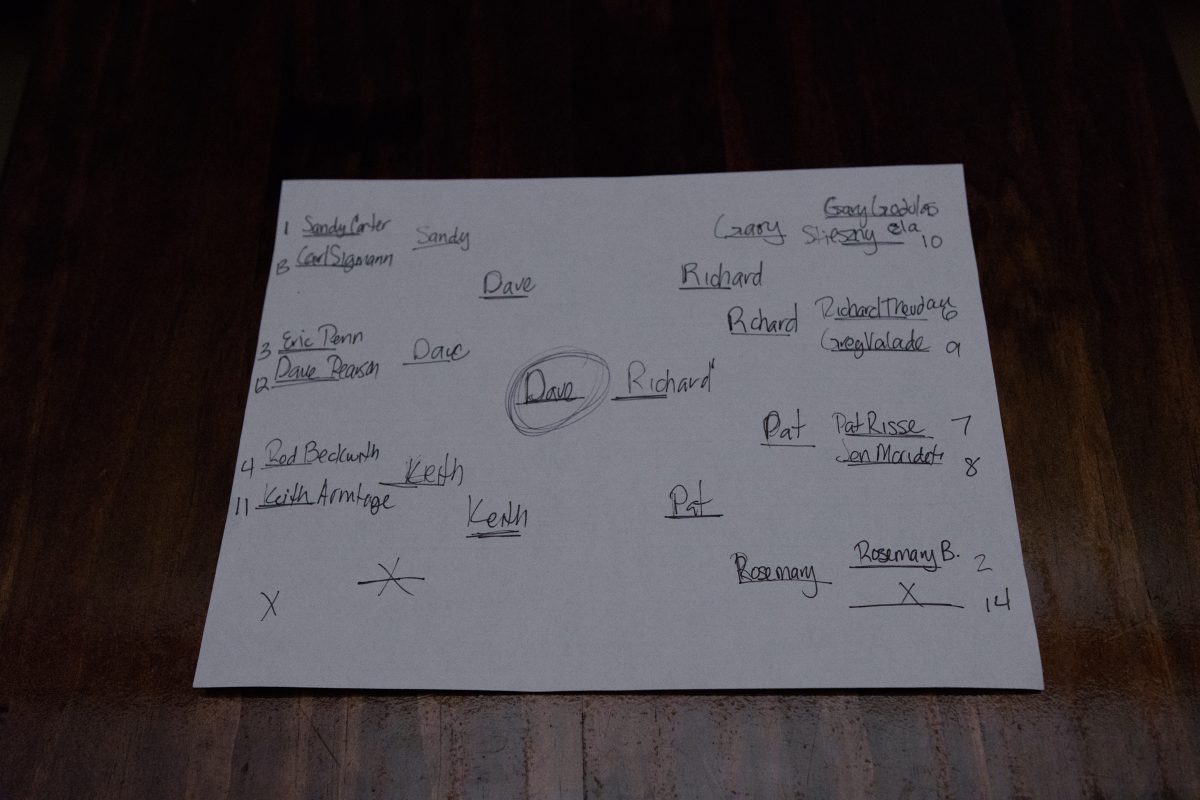 1 Sandy Carter
Sandy
B Carl Sigmann
Dave
3 Eric Penn
Dave
12 Dave Pearson
Dave
4 Rod Beckwith
Keith
11 Keith Armitage
Keith
X
X
Gary
Gary
10
Richard
Richard
Rchard
9 Greg Valade
Pat
Pat Risse 7
Jen 8
Pat
Rosemary
Rosemary B. 2
X 14